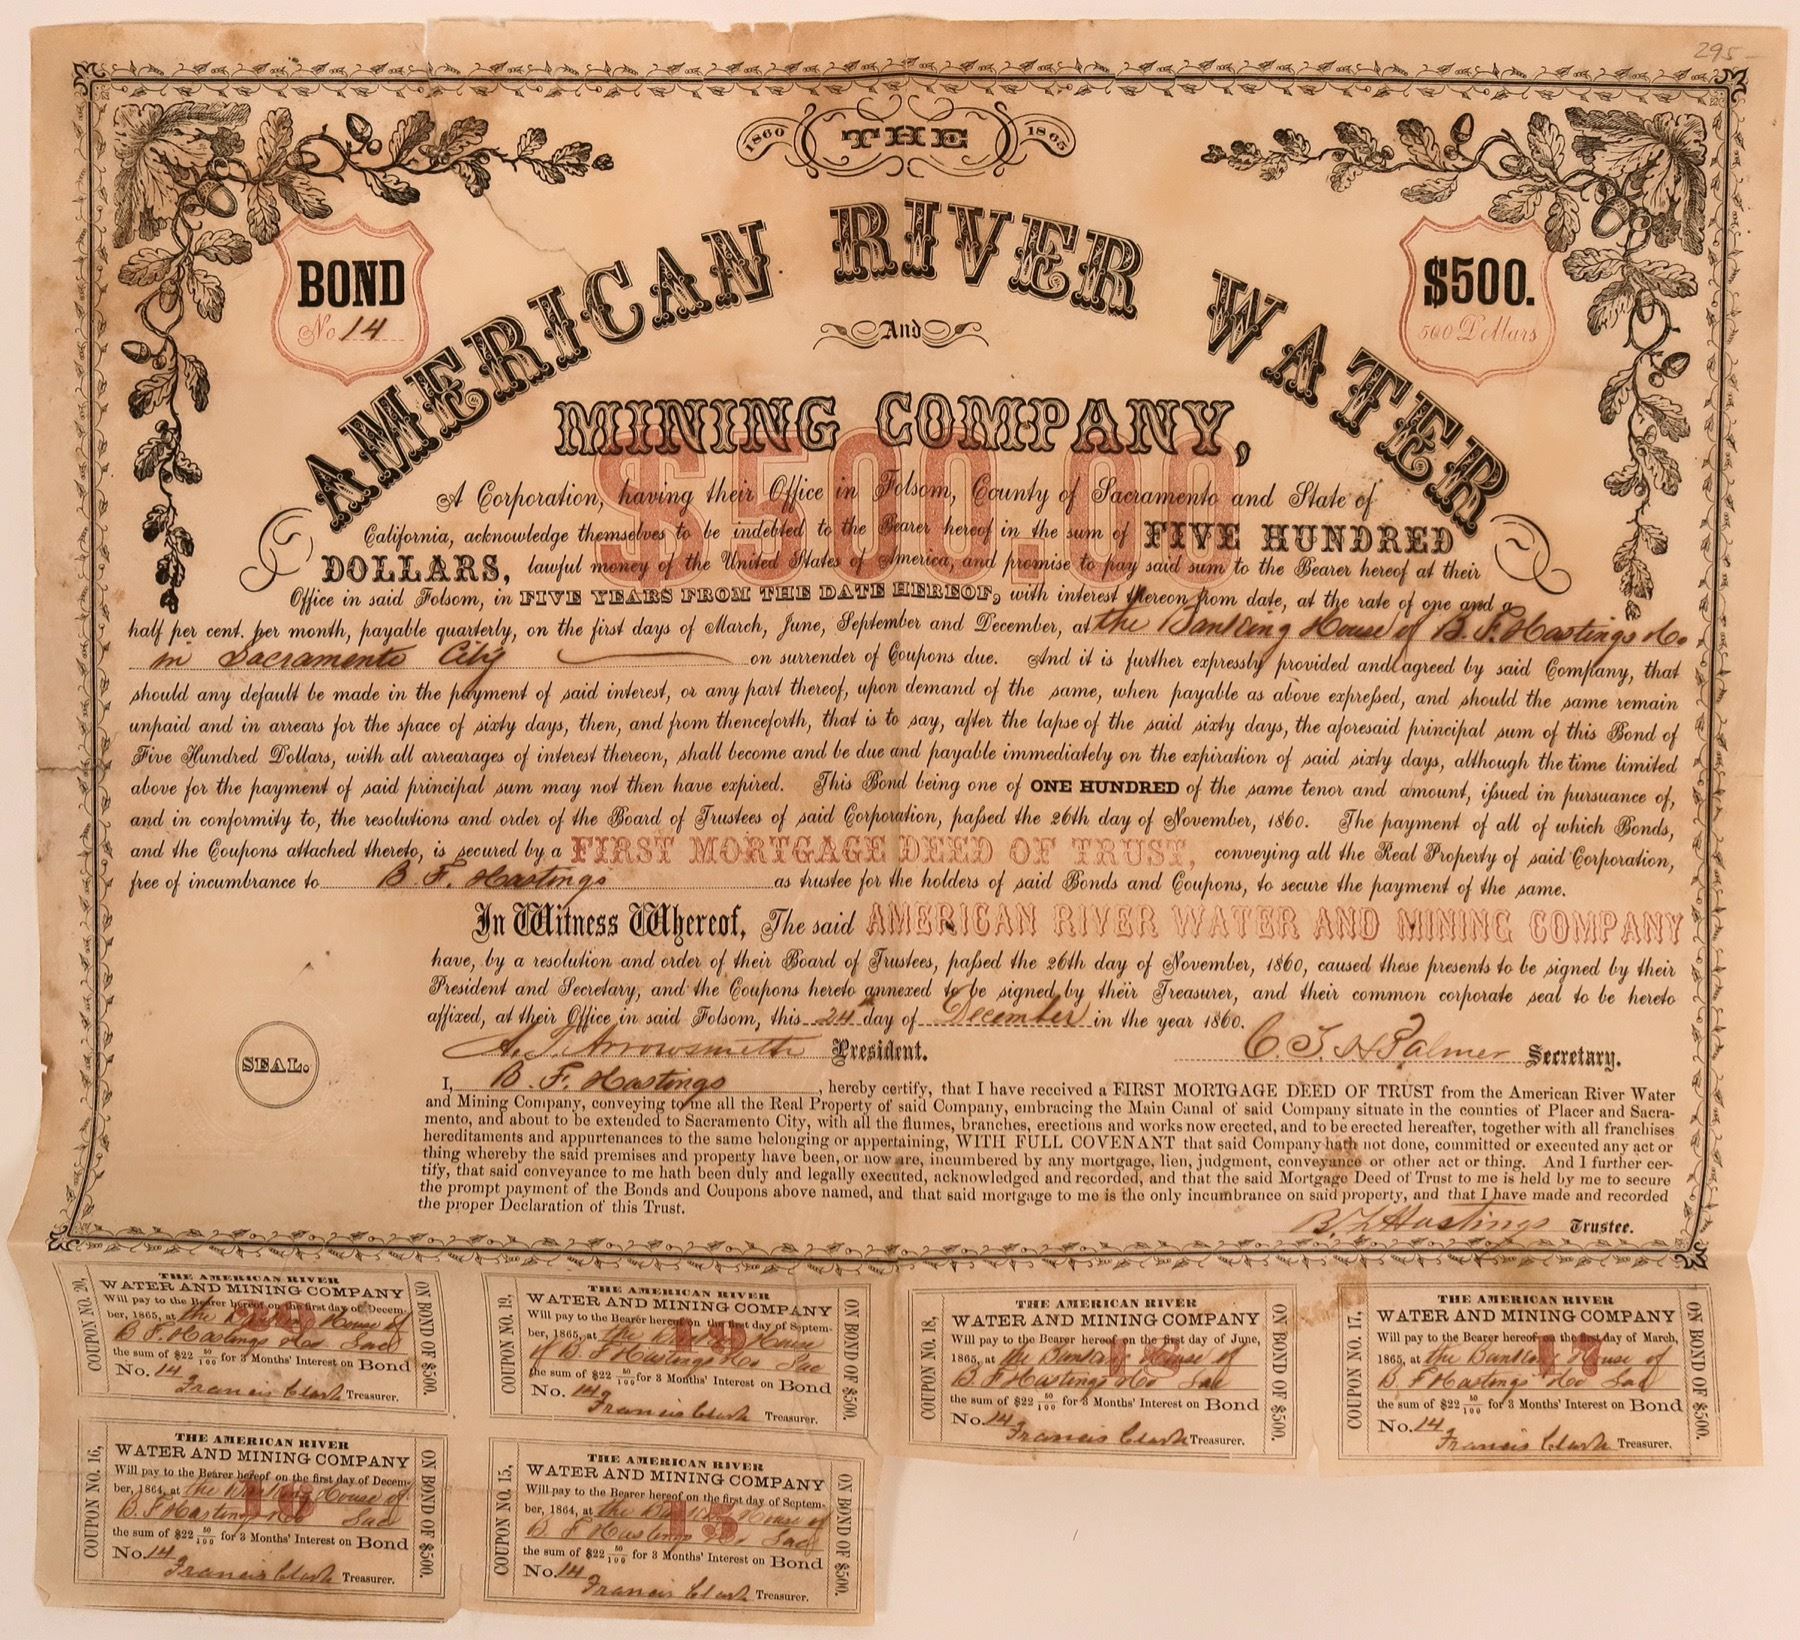 295
1860 THE 1865
BOND
No 14
$500.
500 Dollars
AMERICAN RIVER WATER
And
MINING COMPANY,
$500.00
A Corporation, having their Office in Folsom, County of Sacramento and State of
California, acknowledge themselves to be indebted to the Bearer hereof in the sum of FIVE HUNDRED
DOLLARS, lawful money of the United States of America, and promise to pay said sum to the Bearer hereof at their
Office in said Folsom, in FIVE YEARS FROM THE DATE HEREOF, with interest thereon from date, at the rate of one and a
half per cent. per month, payable quarterly, on the first days of March, June, September and December, at the Banking House of B. F. Hastings & Co
in Sacramento City on surrender of Coupons due. And it is further expressly provided and agreed by said Company, that
should any default be made in the payment of said interest, or any part thereof, upon demand of the same, when payable as above expreſsed, and should the same remain
unpaid and in arrears for the space of sixty days, then, and from thenceforth, that is to say, after the lapse of the said sixty days, the aforesaid principal sum of this Bond of
Five Hundred Dollars, with all arrearages of interest thereon, shall become and be due and payable immediately on the expiration of said sixty days, although the time limited
above for the payment of said principal sum may not then have expired. This Bond being one of ONE HUNDRED of the same tenor and amount, iſsued in pursuance of,
and in conformity to, the resolutions and order of the Board of Trustees of said Corporation, paſsed the 26th day of November, 1860. The payment of all of which Bonds,
and the Coupons attached thereto, is secured by a FIRST MORTGAGE DEED OF TRUST, conveying all the Real Property of said Corporation,
free of incumbrance to B. F. Hastings as trustee for the holders of said Bonds and Coupons, to secure the payment of the same.
In Witness Whereof, The said AMERICAN RIVER WATER AND MINING COMPANY
have, by a resolution and order of their Board of Trustees, paſsed the 26th day of November, 1860, caused these presents to be signed by their
President and Secretary, and the Coupons hereto annexed to be signed by their Treasurer, and their common corporate seal to be hereto
affixed, at their Office in said Folsom, this 24th day of December in the year 1860.
A. T. Arrowsmith President. C. T. H. Palmer Secretary.
SEAL.
I, B. F. Hastings, hereby certify, that I have received a FIRST MORTGAGE DEED OF TRUST from the American River Water
and Mining Company, conveying to me all the Real Property of said Company, embracing the Main Canal of said Company situate in the counties of Placer and Sacra-
mento, and about to be extended to Sacramento City, with all the flumes, branches, erections and works now erected, and to be erected hereafter, together with all franchises
hereditaments and appurtenances to the same belonging or appertaining, WITH FULL COVENANT that said Company hath not done, committed or executed any act or
thing whereby the said premises and property have been, or now are, incumbered by any mortgage, lien, judgment, conveyance or other act or thing. And I further cer-
tify, that said conveyance to me hath been duly and legally executed, acknowledged and recorded, and that the said Mortgage Deed of Trust to me is held by me to secure
the prompt payment of the Bonds and Coupons above named, and that said mortgage to me is the only incumbrance on said property, and that I have made and recorded
the proper Declaration of this Trust.
B. F. Hastings Trustee.
COUPON NO. 20,
THE AMERICAN RIVER
WATER AND MINING COMPANY
Will pay to the Bearer hereof on the first day of Decem-
ber, 1865, at the Banking House of
B. F. Hastings & Co Sac
the sum of $22 50/100 for 3 Months' Interest on Bond
No. 14 Francis Clark Treasurer.
ON BOND OF $500.
20
COUPON NO. 19,
THE AMERICAN RIVER
WATER AND MINING COMPANY
Will pay to the Bearer hereof on the first day of Septem-
ber, 1865, at the Banking House
of B F Hastings & Co Sac
the sum of $22 50/100 for 3 Months' Interest on Bond
No. 14 Francis Clark Treasurer.
ON BOND OF $500.
19
COUPON NO. 18,
THE AMERICAN RIVER
WATER AND MINING COMPANY
Will pay to the Bearer hereof on the first day of June,
1865, at the Banking House of
B. F Hastings & Co Sac
the sum of $22 50/100 for 3 Months' Interest on Bond
No. 14 Francis Clark Treasurer.
ON BOND OF $500.
18
COUPON NO. 17,
THE AMERICAN RIVER
WATER AND MINING COMPANY
Will pay to the Bearer hereof on the first day of March,
1865, at the Banking House of
B. F Hastings & Co Sac
the sum of $22 50/100 for 3 Months' Interest on Bond
No. 14 Francis Clark Treasurer.
ON BOND OF $500.
17
COUPON NO. 16,
THE AMERICAN RIVER
WATER AND MINING COMPANY
Will pay to the Bearer hereof on the first day of Decem-
ber, 1864, at the Banking House of
B. F Hastings & Co Sac
the sum of $22 50/100 for 3 Months' Interest on Bond
No. 14 Francis Clark Treasurer.
ON BOND OF $500.
16
COUPON NO. 15,
THE AMERICAN RIVER
WATER AND MINING COMPANY
Will pay to the Bearer hereof on the first day of Septem-
ber, 1864, at the Banking House of
B F Hastings & Co Sac
the sum of $22 50/100 for 3 Months' Interest on Bond
No. 14 Francis Clark Treasurer.
ON BOND OF $500.
15